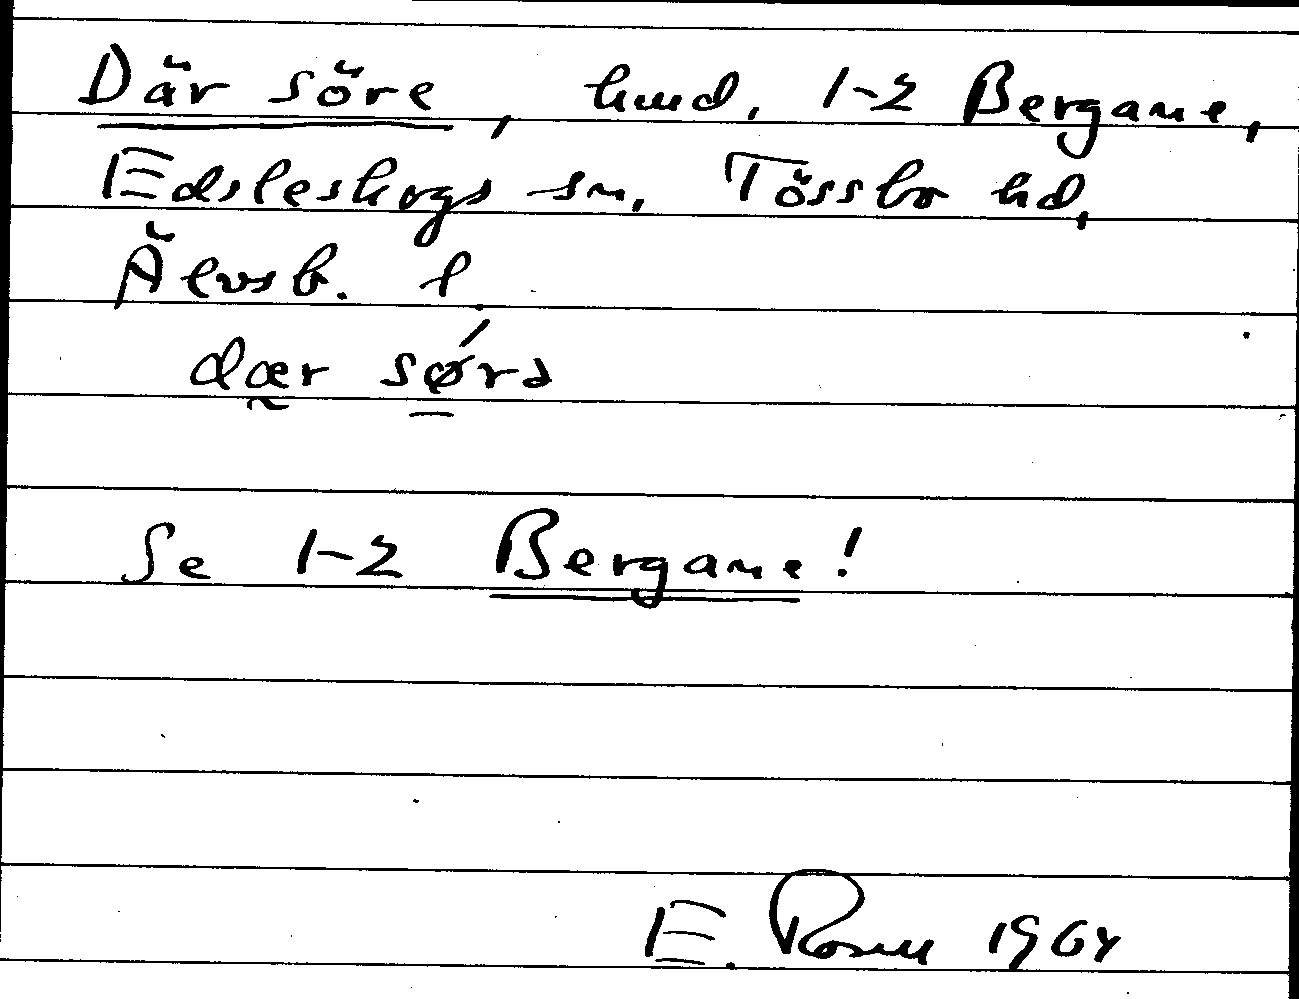 Där söre, hmd. 1-2 Bergane,
Edsleskogs sn, Tössbo hd,
Älvsb. l.
dær sǿrə
Se 1-2 Bergane!
E. 1964